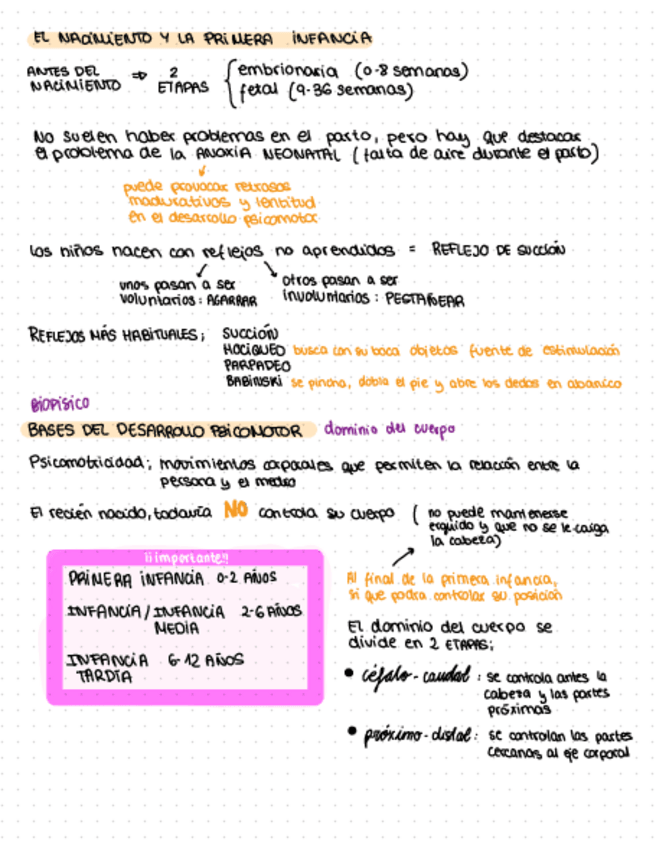 EL NACIMIENTO Y LA PRIMERA INFANCIA
ANTES DEL NACIMIENTO ⇒ 2 ETAPAS { embrionaria (0-8 semanas)
fetal (9-36 semanas)
No suelen haber problemas en el parto, pero hay que destacar
el problema de la ANOXIA NEONATAL (falta de aire durante el parto)
puede provocar retrasos
madurativos y lentitud
en el desarrollo psicomotor
los niños nacen con reflejos no aprendidos = REFLEJO DE SUCCIÓN
unos pasan a ser
voluntarios: AGARRAR
otros pasan a ser
involuntarios: PESTAÑEAR
REFLEJOS MÁS HABITUALES; SUCCIÓN
HOCIQUEO busca con su boca objetos fuente de estimulación
PARPADEO
BABINSKI se pincha, dobla el pie y abre los dedos en abanico
BIOPÍSICO
BASES DEL DESARROLLO PSICOMOTOR dominio del cuerpo
Psicomotricidad; movimientos corporales que permiten la relación entre la
persona y el medio
El recién nacido, todavía NO controla su cuerpo ( no puede mantenerse
erguido y que no se le caiga
la cabeza)
¡¡importante!!
PRIMERA INFANCIA 0-2 AÑOS
INFANCIA/INFANCIA 2-6 AÑOS
MEDIA
INFANCIA 6-12 AÑOS
TARDÍA
Al final de la primera infancia,
si que podra controlar su posicion
El dominio del cuerpo se
divide en 2 ETAPAS;
• céfalo-caudal: se controla antes la
cabeza y las partes
próximas
• próximo-distal: se controlan las partes
cercanas al eje corporal